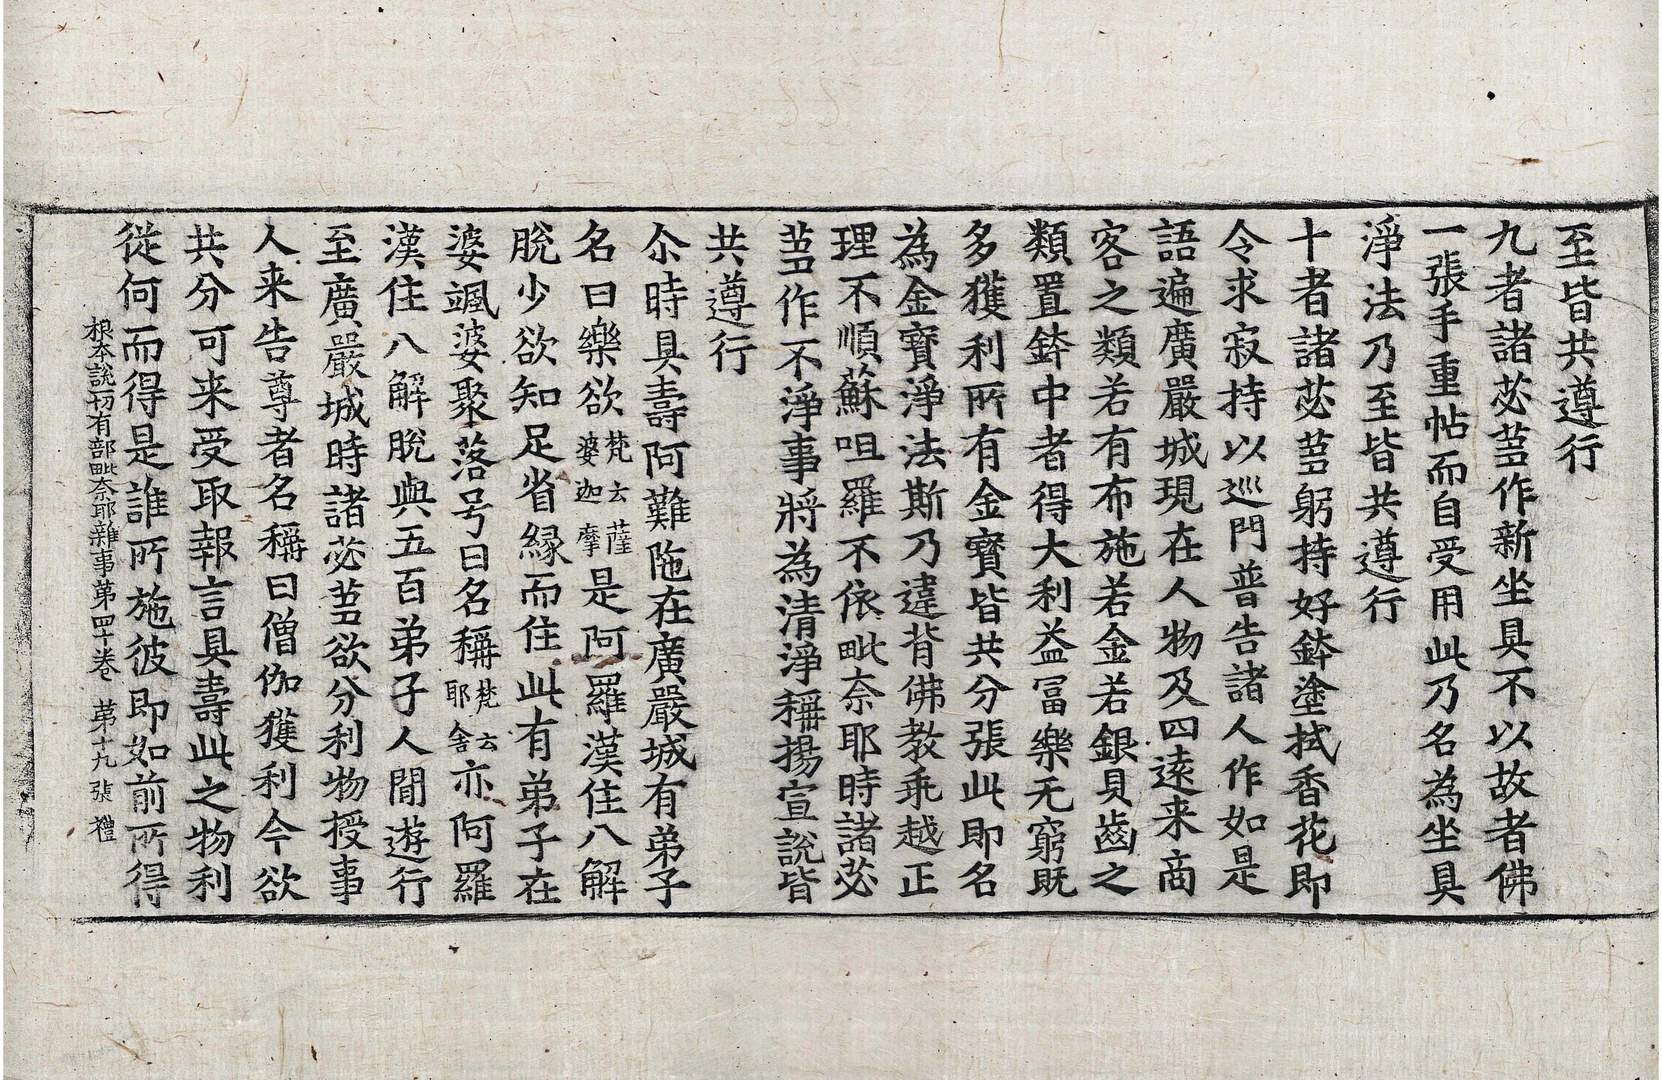 至皆共遵行
九者諸苾蒭作新坐具不以故者佛
一張手重帖而自受用此乃名為坐具
淨法乃至皆共遵行
十者諸苾蒭躬持好鉢塗拭香花即
令求寂持以巡門普告諸人作如是
語遍廣嚴城現在人物及四遠来商
客之類若有布施若金若銀貝齒之
類置鉢中者得大利益冨樂无窮既
多獲利所有金寶皆共分張此即名
為金寶淨法斯乃違背佛教乖越正
理不順蘇呾羅不依毗奈耶時諸苾
蒭作不淨事將為清淨稱揚宣說皆
共遵行
尒時具壽阿難陁在廣嚴城有弟子
名曰樂欲梵云薩婆迦摩是阿羅漢住八解
脫少欲知足省緣而住此有弟子在
婆颯婆聚落号曰名稱梵云耶舍亦阿羅
漢住八解脫與五百弟子人間遊行
至廣嚴城時諸苾蒭欲分利物授事
人来告尊者名稱曰僧伽獲利今欲
共分可来受取報言具壽此之物利
從何而得是誰所施彼即如前所得
根本說一切有部毗奈耶雜事第四十卷 第十九張 禮